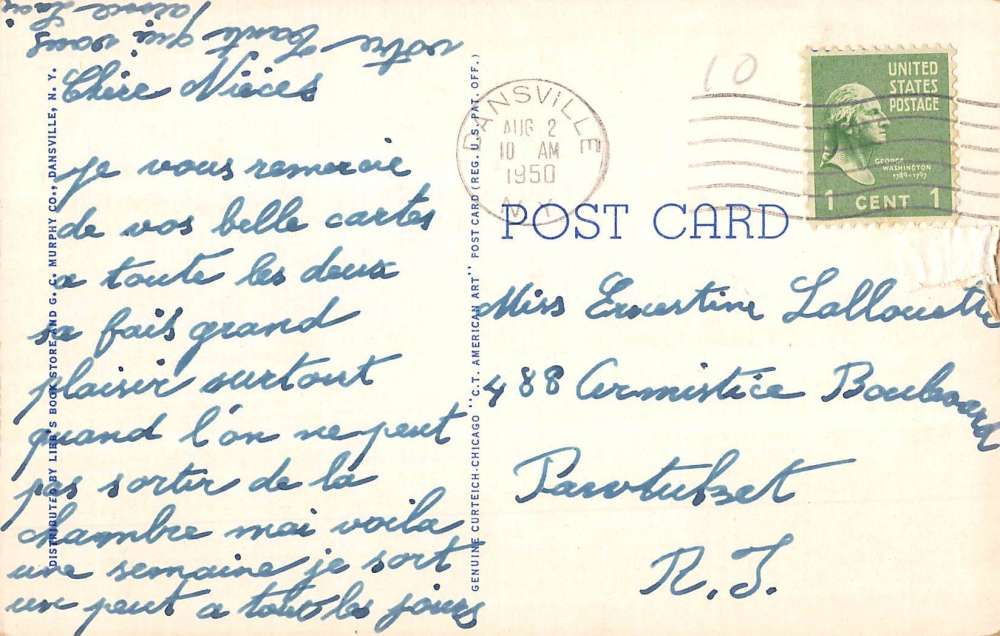 Chère Nièces
je vous remercie
de vos belle cartes
a toute les deux
sa fais grand
plaisir surtout
quand l'on ne peut
pas sortir de la
chambre mai voila
une semaine je sort
un peut a tout les jours
votre tante qui vous
DISTRIBUTED BY LIEB'S BOOK STORE AND G. C. MURPHY CO., DANSVILLE, N. Y.
GENUINE CURTEICH-CHICAGO "C.T. AMERICAN ART" POST CARD (REG. U.S. PAT. OFF.)
DANSVILLE
AUG 2
10 AM
1950
N.Y.
10
UNITED
STATES
POSTAGE
GEORGE
WASHINGTON
1789-1797
1 CENT 1
POST CARD
Miss Ernestine Lallouette
488 Armistice Boulevard
Pawtuket
R.I.